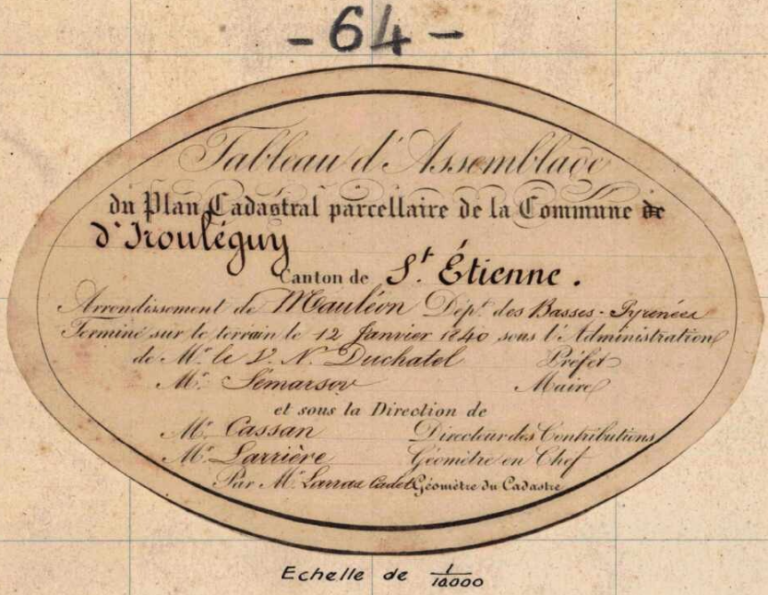 - 64 -
Tableau d'Assemblage
du Plan Cadastral parcellaire de la Commune de
d'Irouléguy
Canton de St. Étienne.
Arrondissement de Mauléon Dépt. des Basses-Pyrenées
Terminé sur le terrain le 12 Janvier 1840 sous l'Administration
de Mr. le V. N. Duchatel Préfet
Mr. Maire
et sous la Direction de
Mr. Cassan Directeur des Contributions
Mr. Larrière Géomètre en Chef
Par Mr. Cadet Géomètre du Cadastre
Echelle de 1/10.000